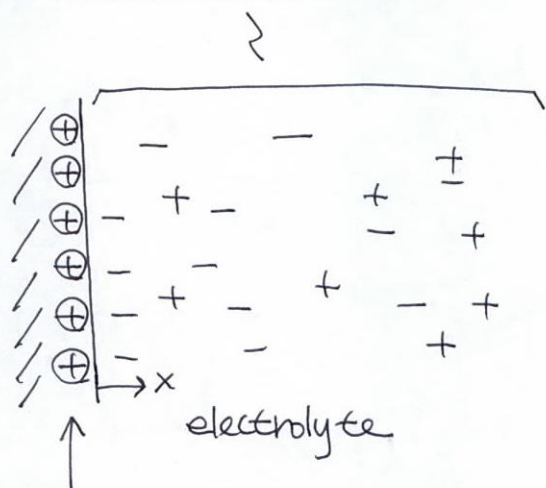 x
electrolyte